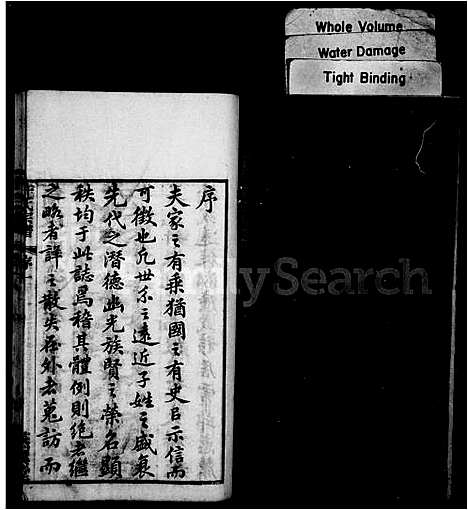 Whole Volume
Water Damage
Tight Binding
序
夫家之有乘猶國之有史所以示信而
可徵也凡世系之遠近子姓之盛衰
先代之潛德幽光族賢之榮名顯
秩均于此誌焉稽其體例則絕者繼
之略者詳之散失在外者蒐訪而
FamilySearch